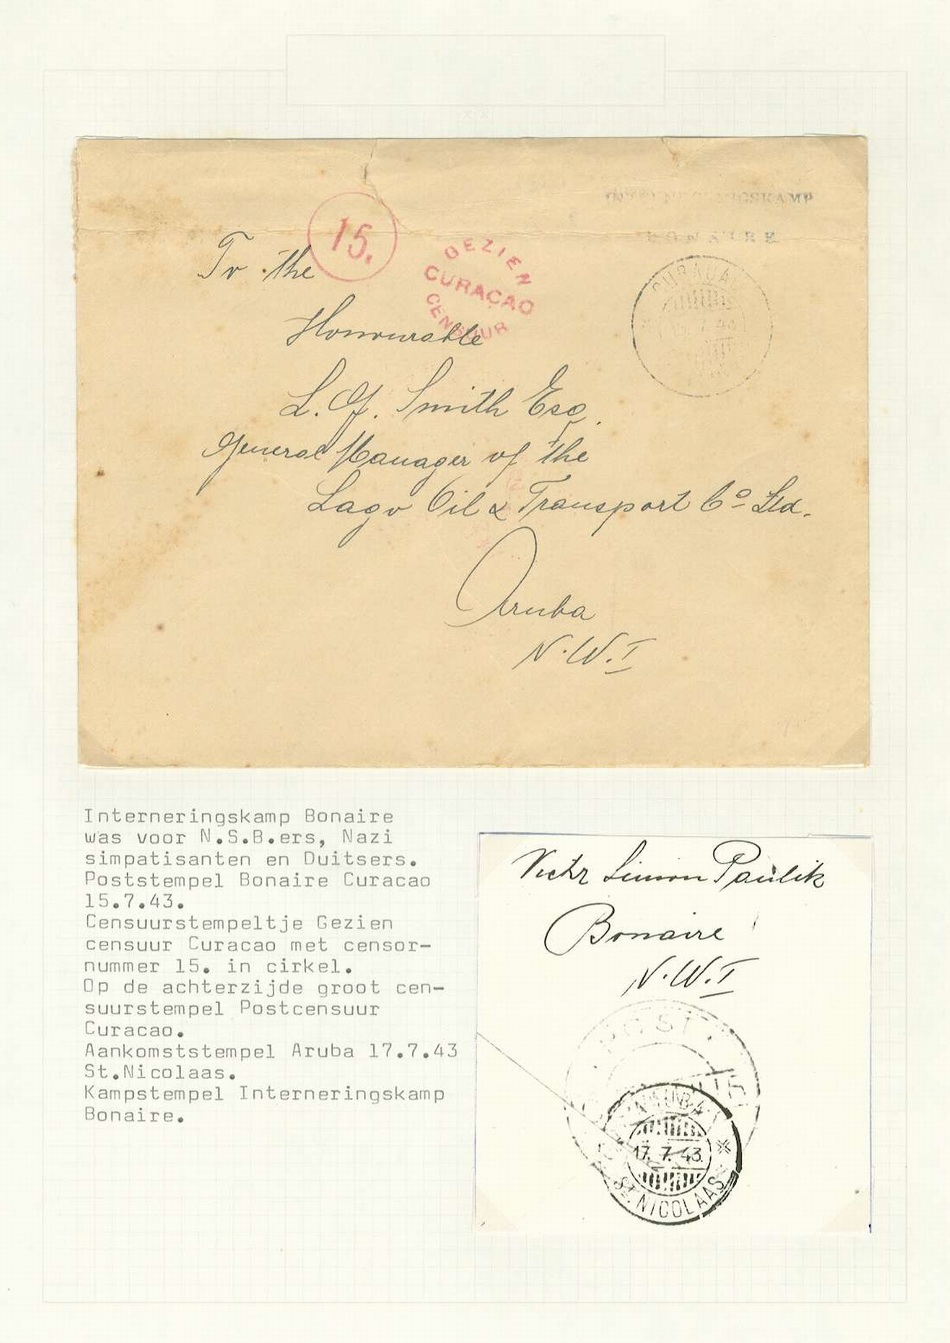 INTERNERINGSKAMP
BONAIRE
15.
GEZIEN
CURAÇAO
CENSUUR
CURAÇAO
7.43
To the
Honourable
L. G. Smith Esq.
General Manager of the
Lago Oil & Transport Co Ltd.
Aruba
N.W.I
Interneringskamp Bonaire
was voor N.S.B.ers, Nazi
simpatisanten en Duitsers.
Poststempel Bonaire Curacao
15.7.43.
Censuurstempeltje Gezien
censuur Curacao met censor-
nummer 15. in cirkel.
Op de achterzijde groot cen-
suurstempel Postcensuur
Curacao.
Aankomststempel Aruba 17.7.43
St.Nicolaas.
Kampstempel Interneringskamp
Bonaire.
Victor Simon Paulik
Bonaire
N.W.I
POST
ARUBA
17.7.43.
ST. NICOLAAS